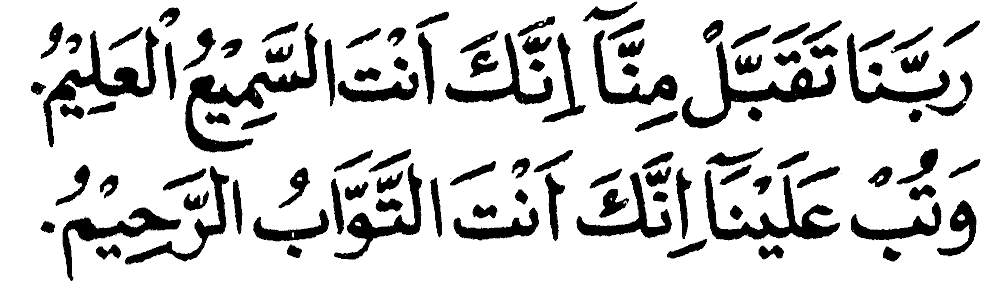 رَبَّنَا تَقَبَّلْ مِنَّآ اِنَّكَ اَنْتَ السَّمِيْعُ الْعَلِيْمُ.
وَتُبْ عَلَيْنَآ اِنَّكَ اَنْتَ التَّوَّابُ الرَّحِيْمُ.